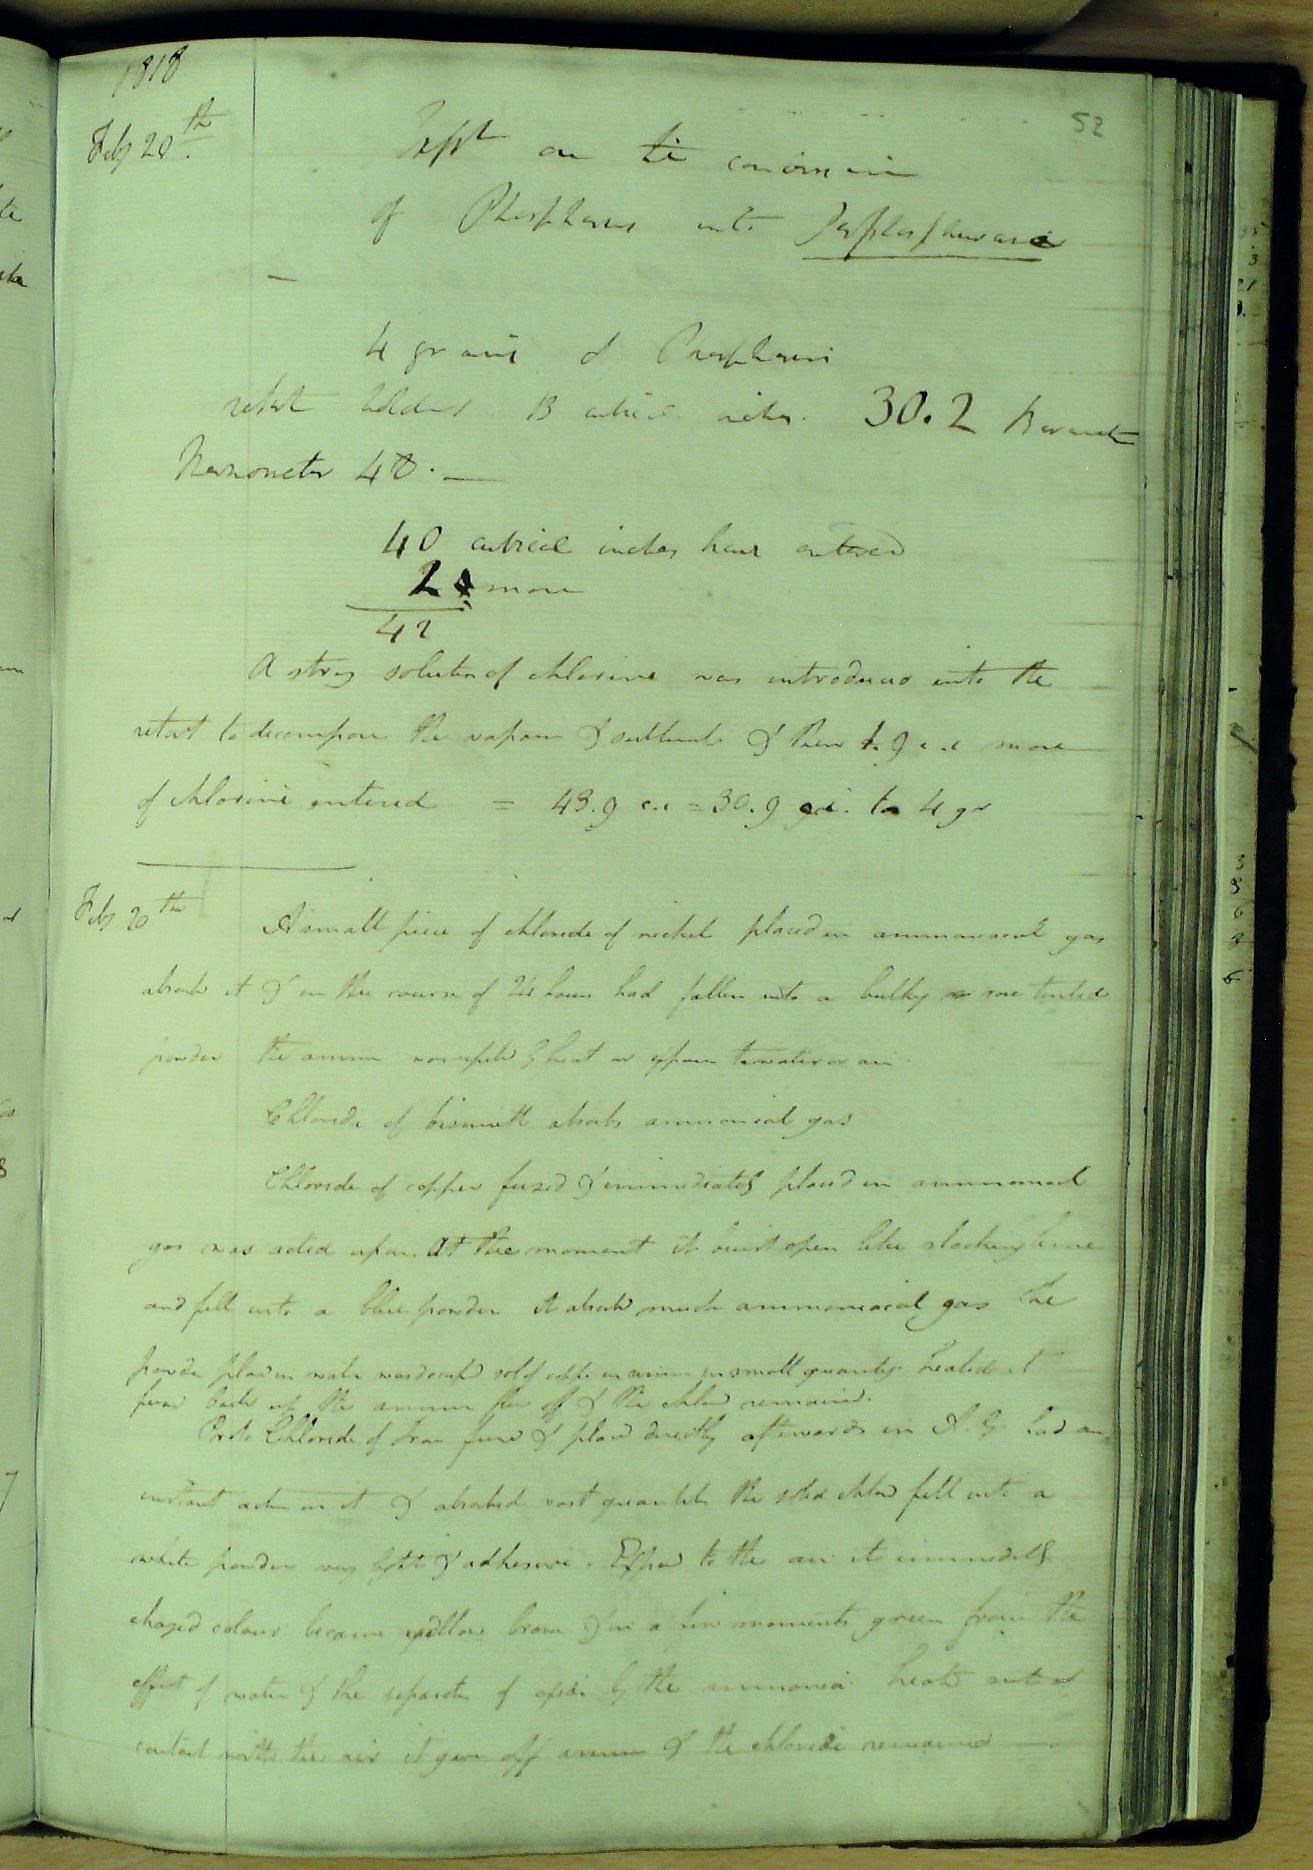 1818
52
Feby 20th.
Expt on the conversion
of Phosphorus into Perphosphoric
4 grains of Phosphorus
retort holds 13 cubical inches. 30.2 Barometer
Thermometer 48. —
40 cubical inches have entered
2 more
42
A strong solution of chlorine was introduced into the
retort to decompose the vapour & sublimate & then 1.9 c.i more
of chlorine entered = 43.9 c.i = 30.9 c.i. to 4 gr
Feby 20th
A small piece of chloride of nickel placed in ammoniacal gas
absorbd it & in the course of 24 hours had fallen into a bulky rose tinted
powder the ammon was expelld by heat or exposure to water or air.
Chloride of bismuth absorbs ammoniacal gas
Chloride of copper fused & immediately placed in ammoniacal
gas was acted upon. At the moment it burst open like slacking lime
and fell into a blue powder it absorbd much ammoniacal gas the
powder placed in water sol of copper in ammon in small quantity heated it
fused back up the ammon flew off & the chlor remained.
Proto Chloride of Iron fused & placed directly afterwards in A. G. had an
instant action on it & absorbed vast quantities the solid chlor fell into a
white powder very light & adhesive. Exposed to the air it immediately
changed colour became yellow brown & in a few moments green from the
effect of water & the separation of oxide by the ammonia heated without
contact with the air it gave off ammon & the chloride remained —